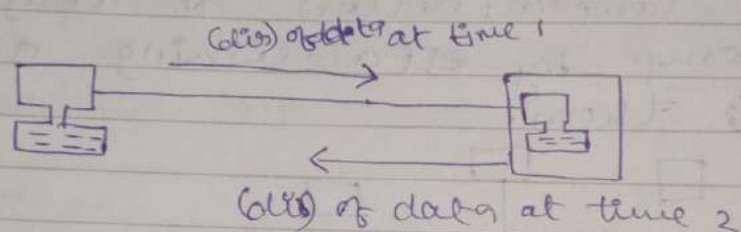 (dir) of data at time 1
(dir) of data at time 2